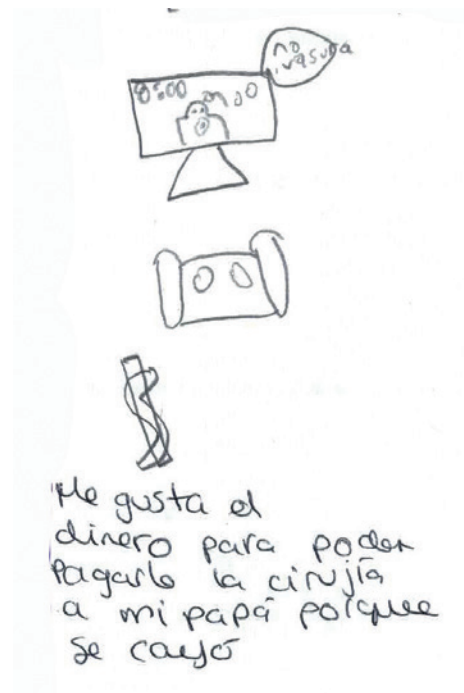 no
vasura
8:00
Me gusta el
dinero para poder
pagarle la cirujía
a mi papá porque
se cayó